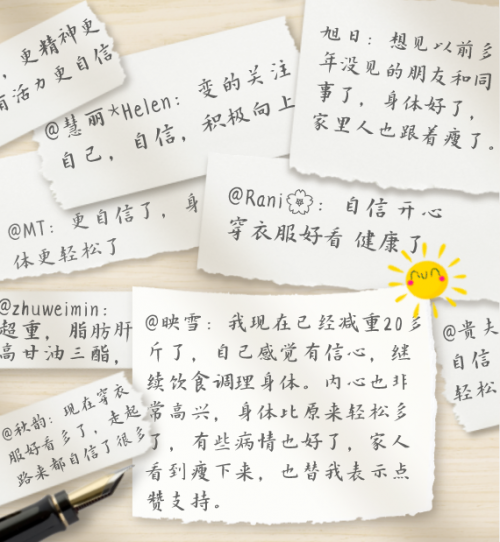 ，更精神更
有活力更自信
@慧丽*Helen：变的关注
自己，自信，积极向上
旭日：想见以前多
年没见的朋友和同
事了，身体好了，
家里人也跟着瘦了。
@MT：更自信了，身
体更轻松了
@Rani🌸：自信 开心
穿衣服好看 健康了
@zhuweimin：
超重，脂肪肝
高甘油三酯，
@映雪：我现在已经减重20多
斤了，自己感觉有信心，继
续饮食调理身体。内心也非
常高兴，身体比原来轻松多
了，有些病情也好了，家人
看到瘦下来，也替我表示点
赞支持。
@贵夫
自信
轻松
@秋韵：现在穿衣
服好看多了，走起
路来都自信了很多